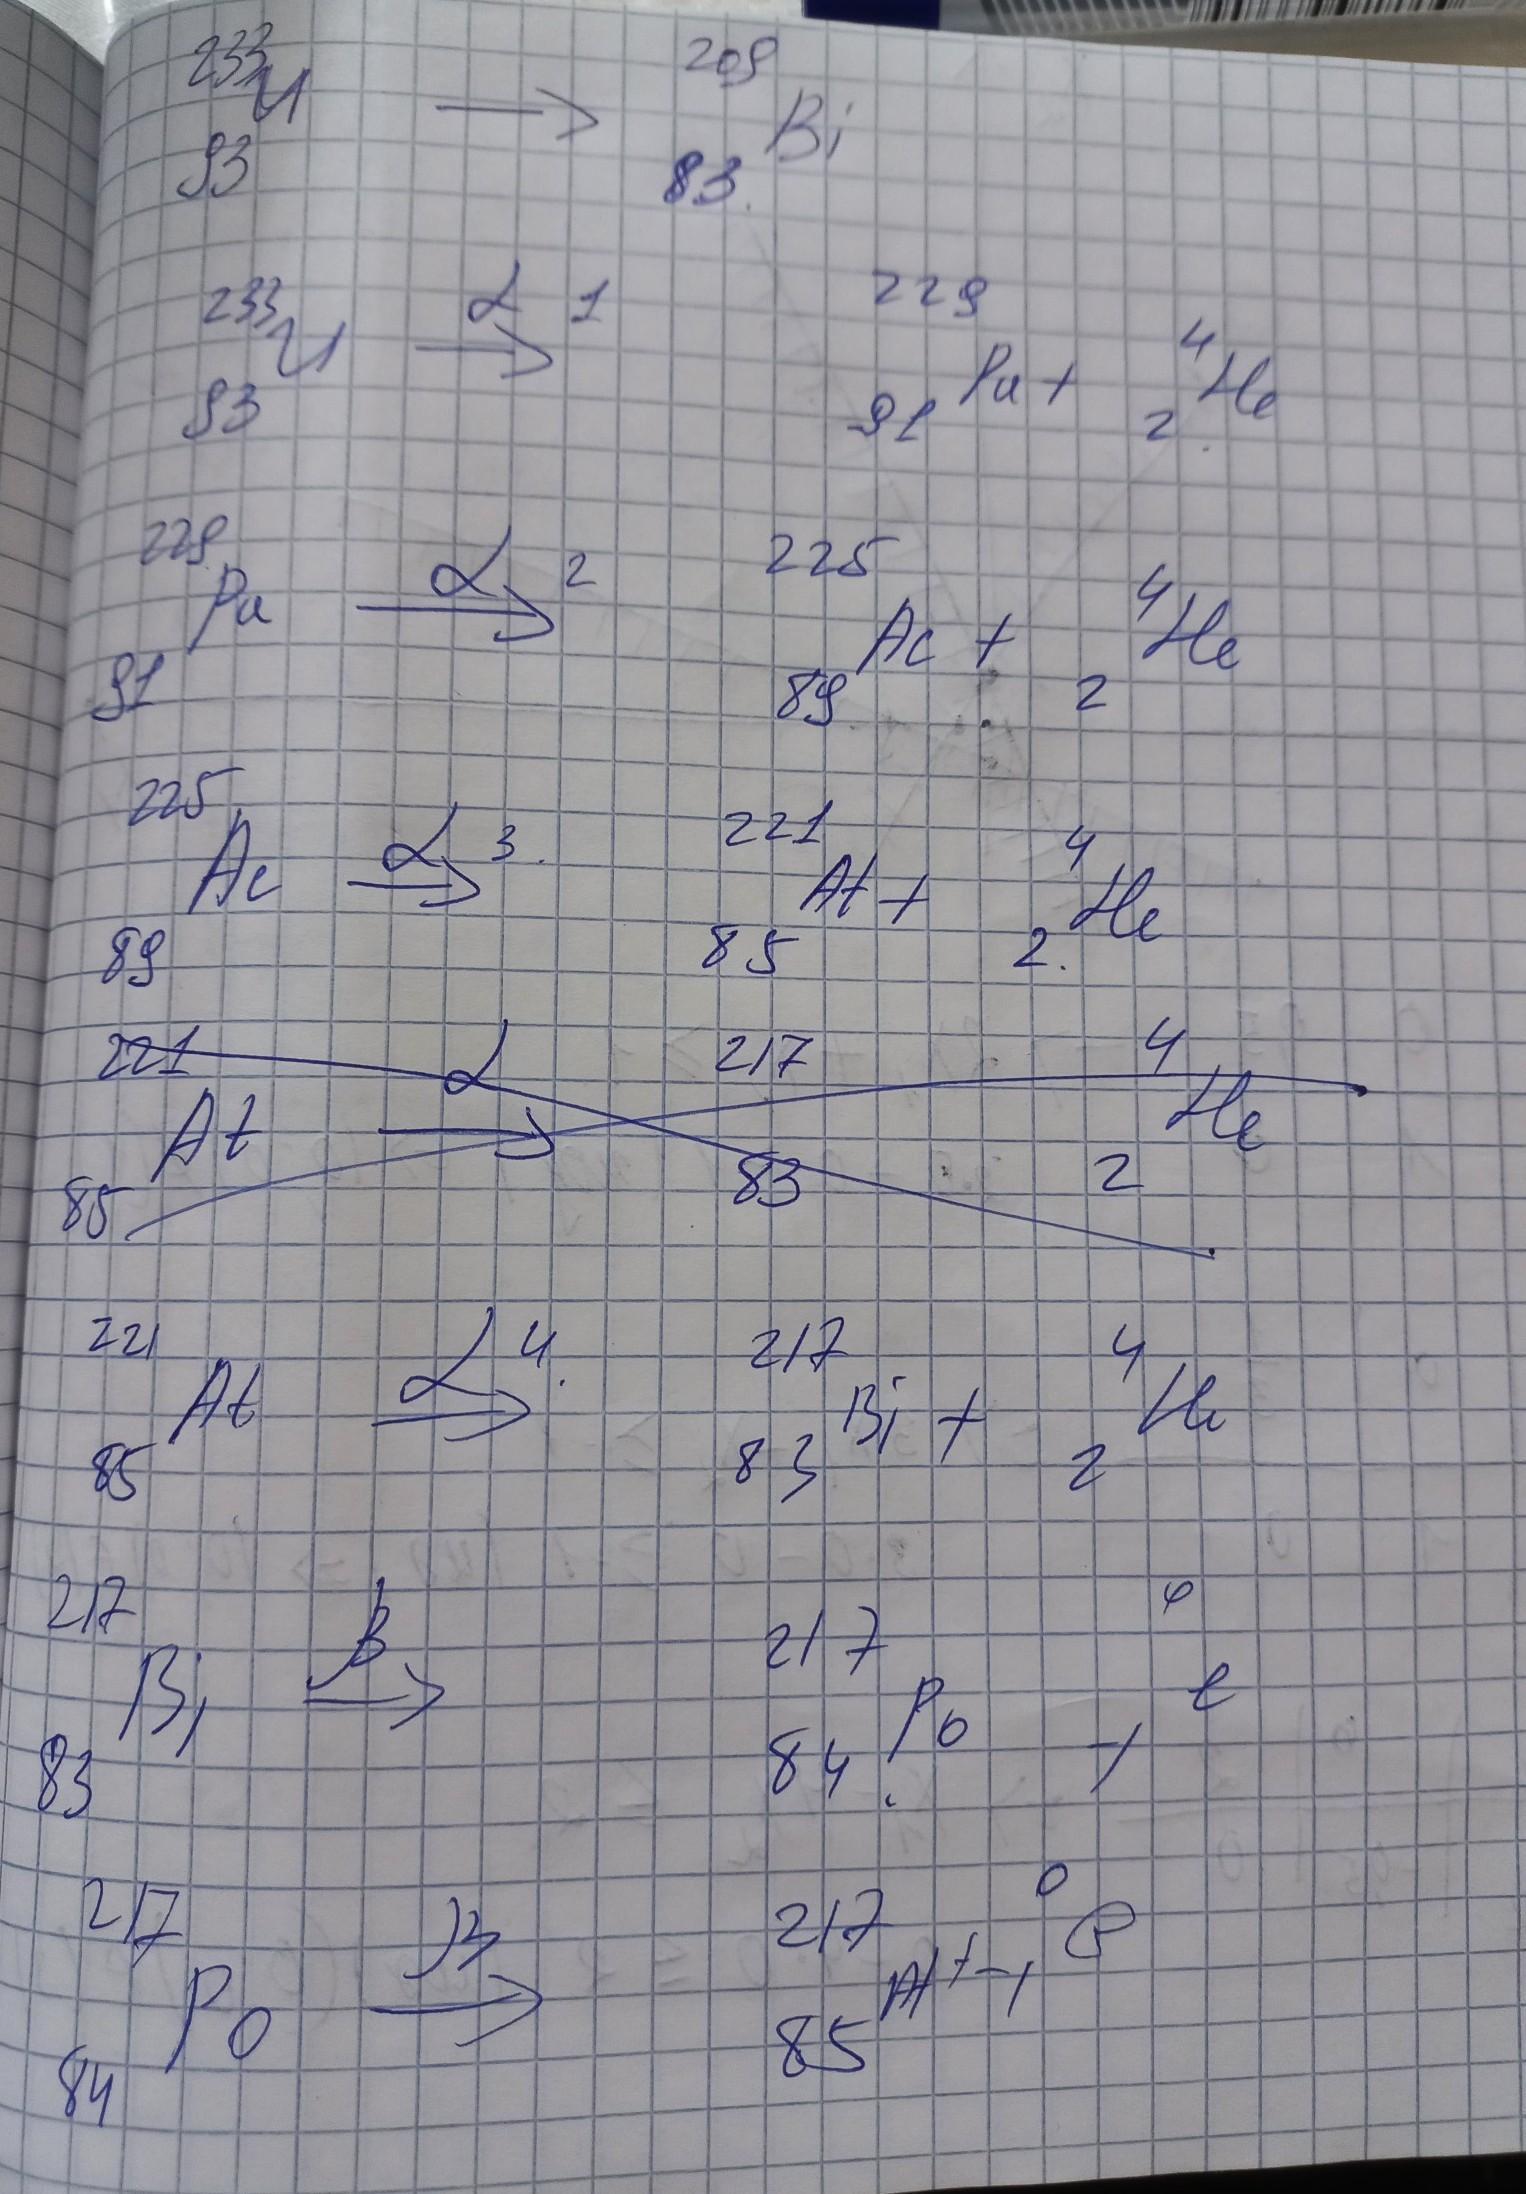 ²³³₉₃U → ²⁰⁹₈₃Bi
²³³₉₃U α 1 → ²²⁹₉₁Pa + ⁴₂He
²²⁹₉₁Pa α 2 → ²²⁵₈₉Ac + ⁴₂He
²²⁵₈₉Ac α 3. → ²²¹₈₅At + ⁴₂He
²²¹₈₅At α → ²¹⁷₈₃ ⁴₂He
²²¹₈₅At α 4. → ²¹⁷₈₃Bi + ⁴₂He
²¹⁷₈₃Bi β → ²¹⁷₈₄Po ⁰₋₁e
²¹⁷₈₄Po β → ²¹⁷₈₅At + ⁰₋₁e